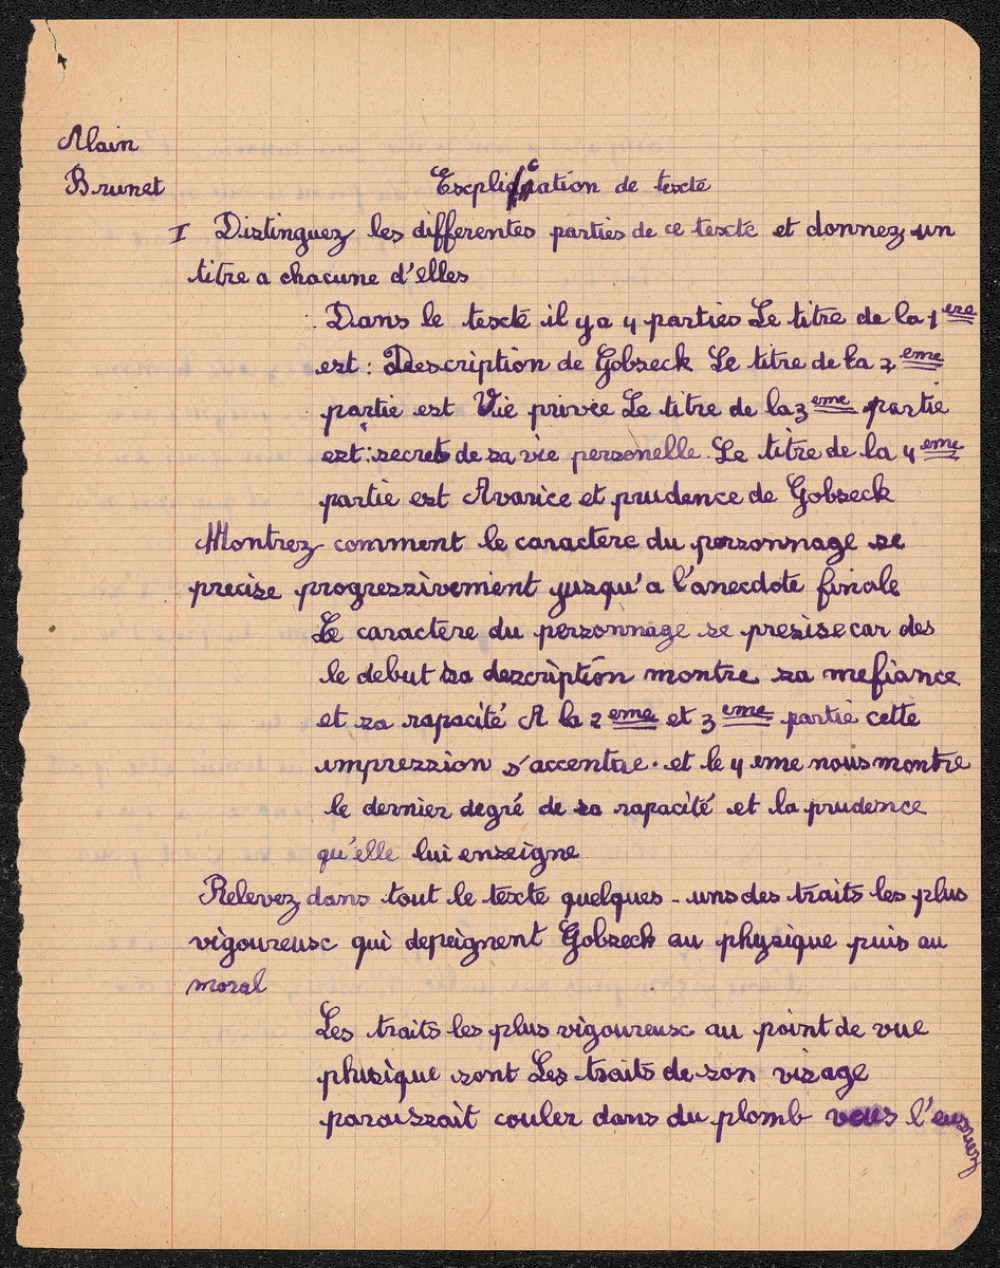 Alain
Brunet
Explication de texte
I Distinguez les differentes parties de ce texte et donnez un
titre a chacune d'elles
Dans le texte il y a 4 parties Le titre de la 1 ere
est : Description de Gobseck Le titre de la 2 eme
partie est Vie privée Le titre de la 3 eme partie
est : secrets de sa vie personelle. Le titre de la 4 eme
partie est Avarice et prudence de Gobseck
Montrez comment le caractere du personnage se
precise progressivement jusqu'a l'anecdote finale
Le caractere du personnage se presise car des
le debut sa description montre sa mefiance
et sa rapacité A la 2 eme et 3 eme partie cette
impression s'accentue. et le 4 eme nous montre
le dernier degré de sa rapacité et la prudence
qu'elle lui enseigne
Relevez dans tout le texte quelques-uns des traits les plus
vigoureux qui depeignent Gobseck au physique puis au
moral
Les traits les plus vigoureux au point de vue
physique sont Les traits de son visage
paraissait couler dans du plomb vous l'eussiez